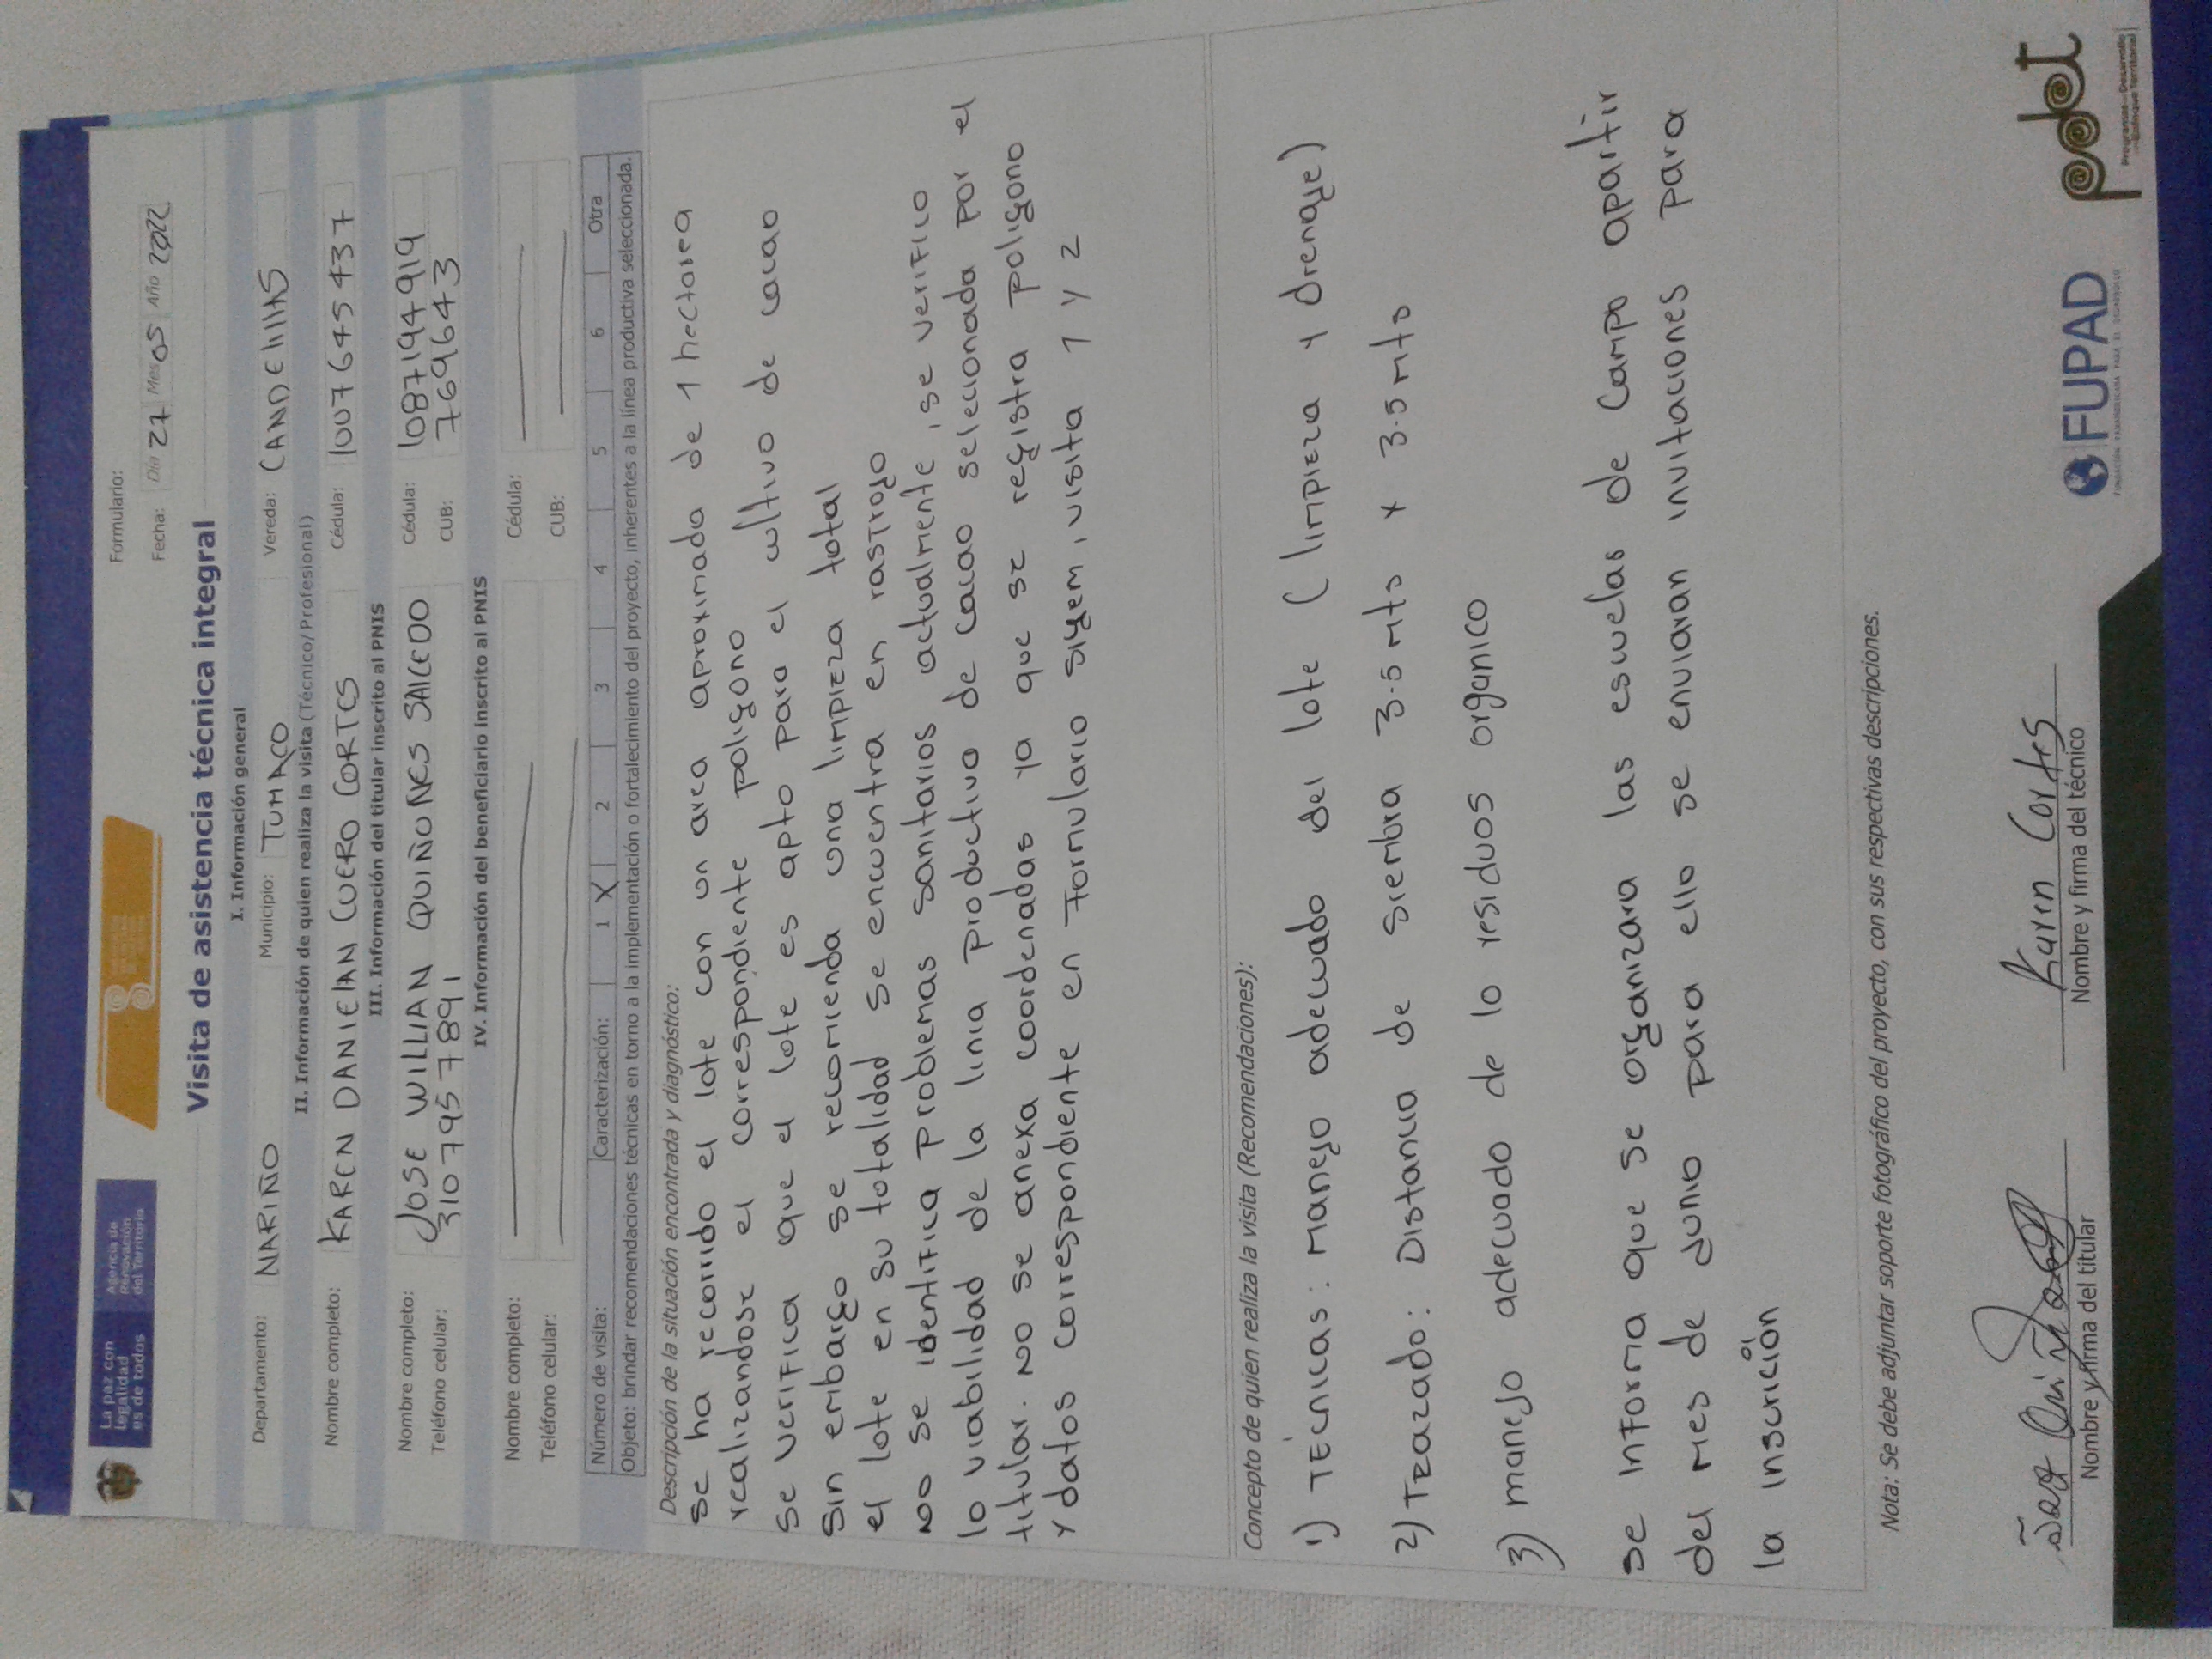 La paz con
legalidad
es de todos
Agencia de
Renovación
del Territorio
Formulario:
Fecha: Día 27 Mes 05 Año 2022
Visita de asistencia técnica integral
I. Información general
Departamento: NARIÑO Municipio: TUMACO Vereda: CANDElillAS
II. Información de quien realiza la visita (Técnico/Profesional)
Nombre completo: KAREN DANIElAN CUERO CORTES Cédula: 1007645437
III. Información del titular inscrito al PNIS
Nombre completo: JOSE WILLIAN QUIÑONES SAlCEDO Cédula: 1087194919
Teléfono celular: 3107957891 CUB: 769643
IV. Información del beneficiario inscrito al PNIS
Nombre completo: Cédula:
Teléfono celular: CUB:
Número de visita: Caracterización: 1 X 2 3 4 5 6 Otra
Objeto: brindar recomendaciones técnicas en torno a la implementación o fortalecimiento del proyecto, inherentes a la línea productiva seleccionada.
Descripción de la situación encontrada y diagnóstico:
se ha recorrido el lote con un area aproximada de 1 hectarea
realizandose el correspondiente poligono
se verifica que el lote es apto para el cultivo de cacao
sin embargo se recomienda una limpieza total
el lote en su totalidad se encuentra en rastrojo
no se identifica problemas sanitarios actualmente, se verifico
la viabilidad de la linia productivo de cacao seleccionada por el
titular. no se anexa coordenadas ya que se registra poligono
y datos correspondiente en formulario sigem, visita 1 y 2
Concepto de quien realiza la visita (Recomendaciones):
1) TÉCNICAS: manejo adecuado del lote (limpieza y drenaje)
2) Trazado: Distancia de siembra 3.5 mts x 3.5 mts
3) manejo adecuado de lo residuos organico
se informa que se organizara las escuelas de campo apartir
del mes de junio para ello se enviaran invitaciones para
la inscrición
Nota: Se debe adjuntar soporte fotográfico del proyecto, con sus respectivas descripciones.
Karen Cortes
Nombre y firma del titular Nombre y firma del técnico
FUPAD
FUNDACIÓN PANAMERICANA PARA EL DESARROLLO
pdet
Programas de Desarrollo
con Enfoque Territorial